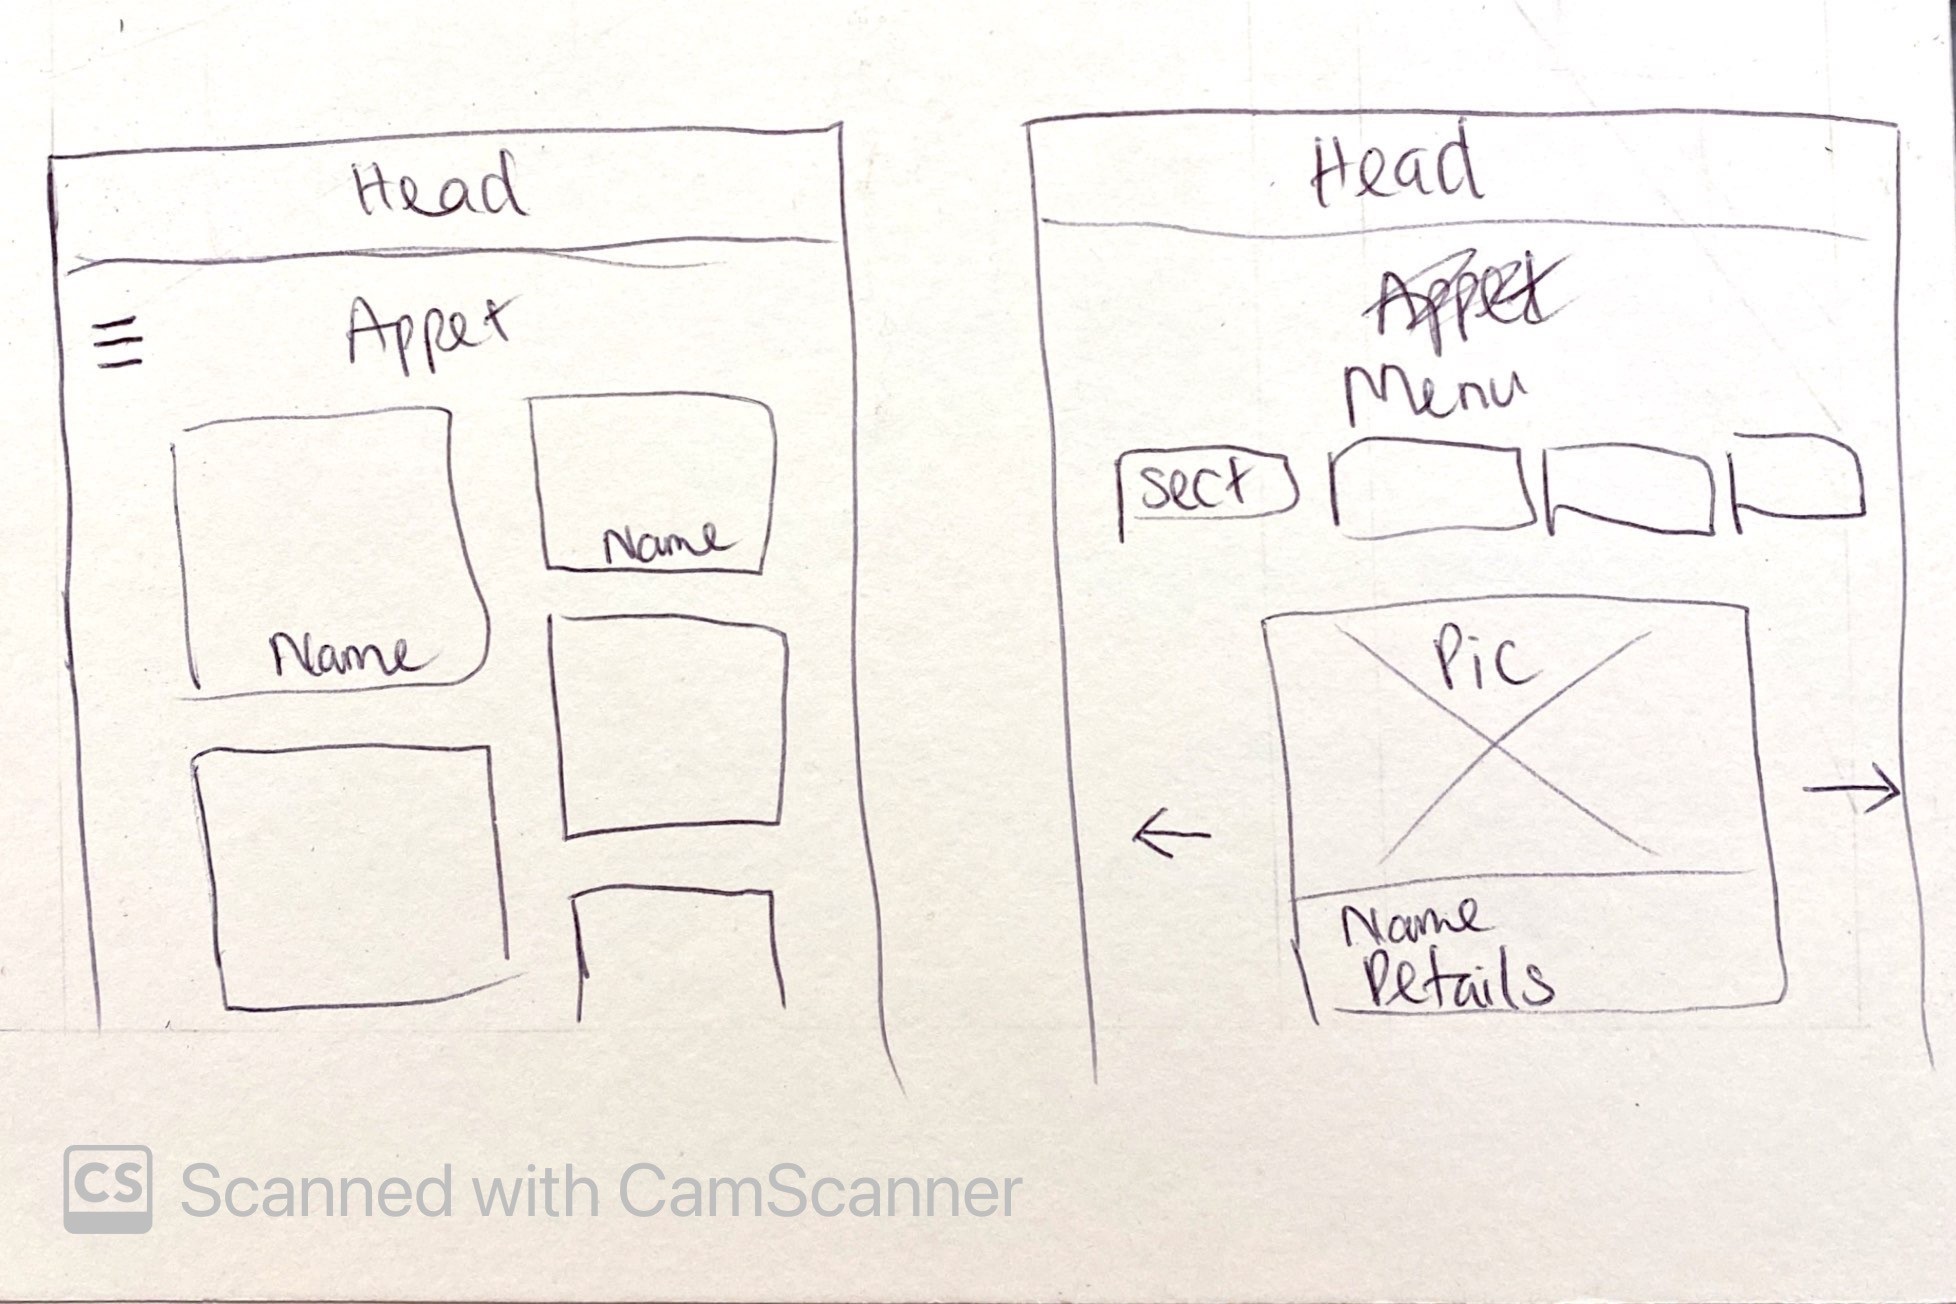 Head
Appet
Name
Name
Head
Appet
Menu
sect
Pic
Name
Details
CS Scanned with CamScanner